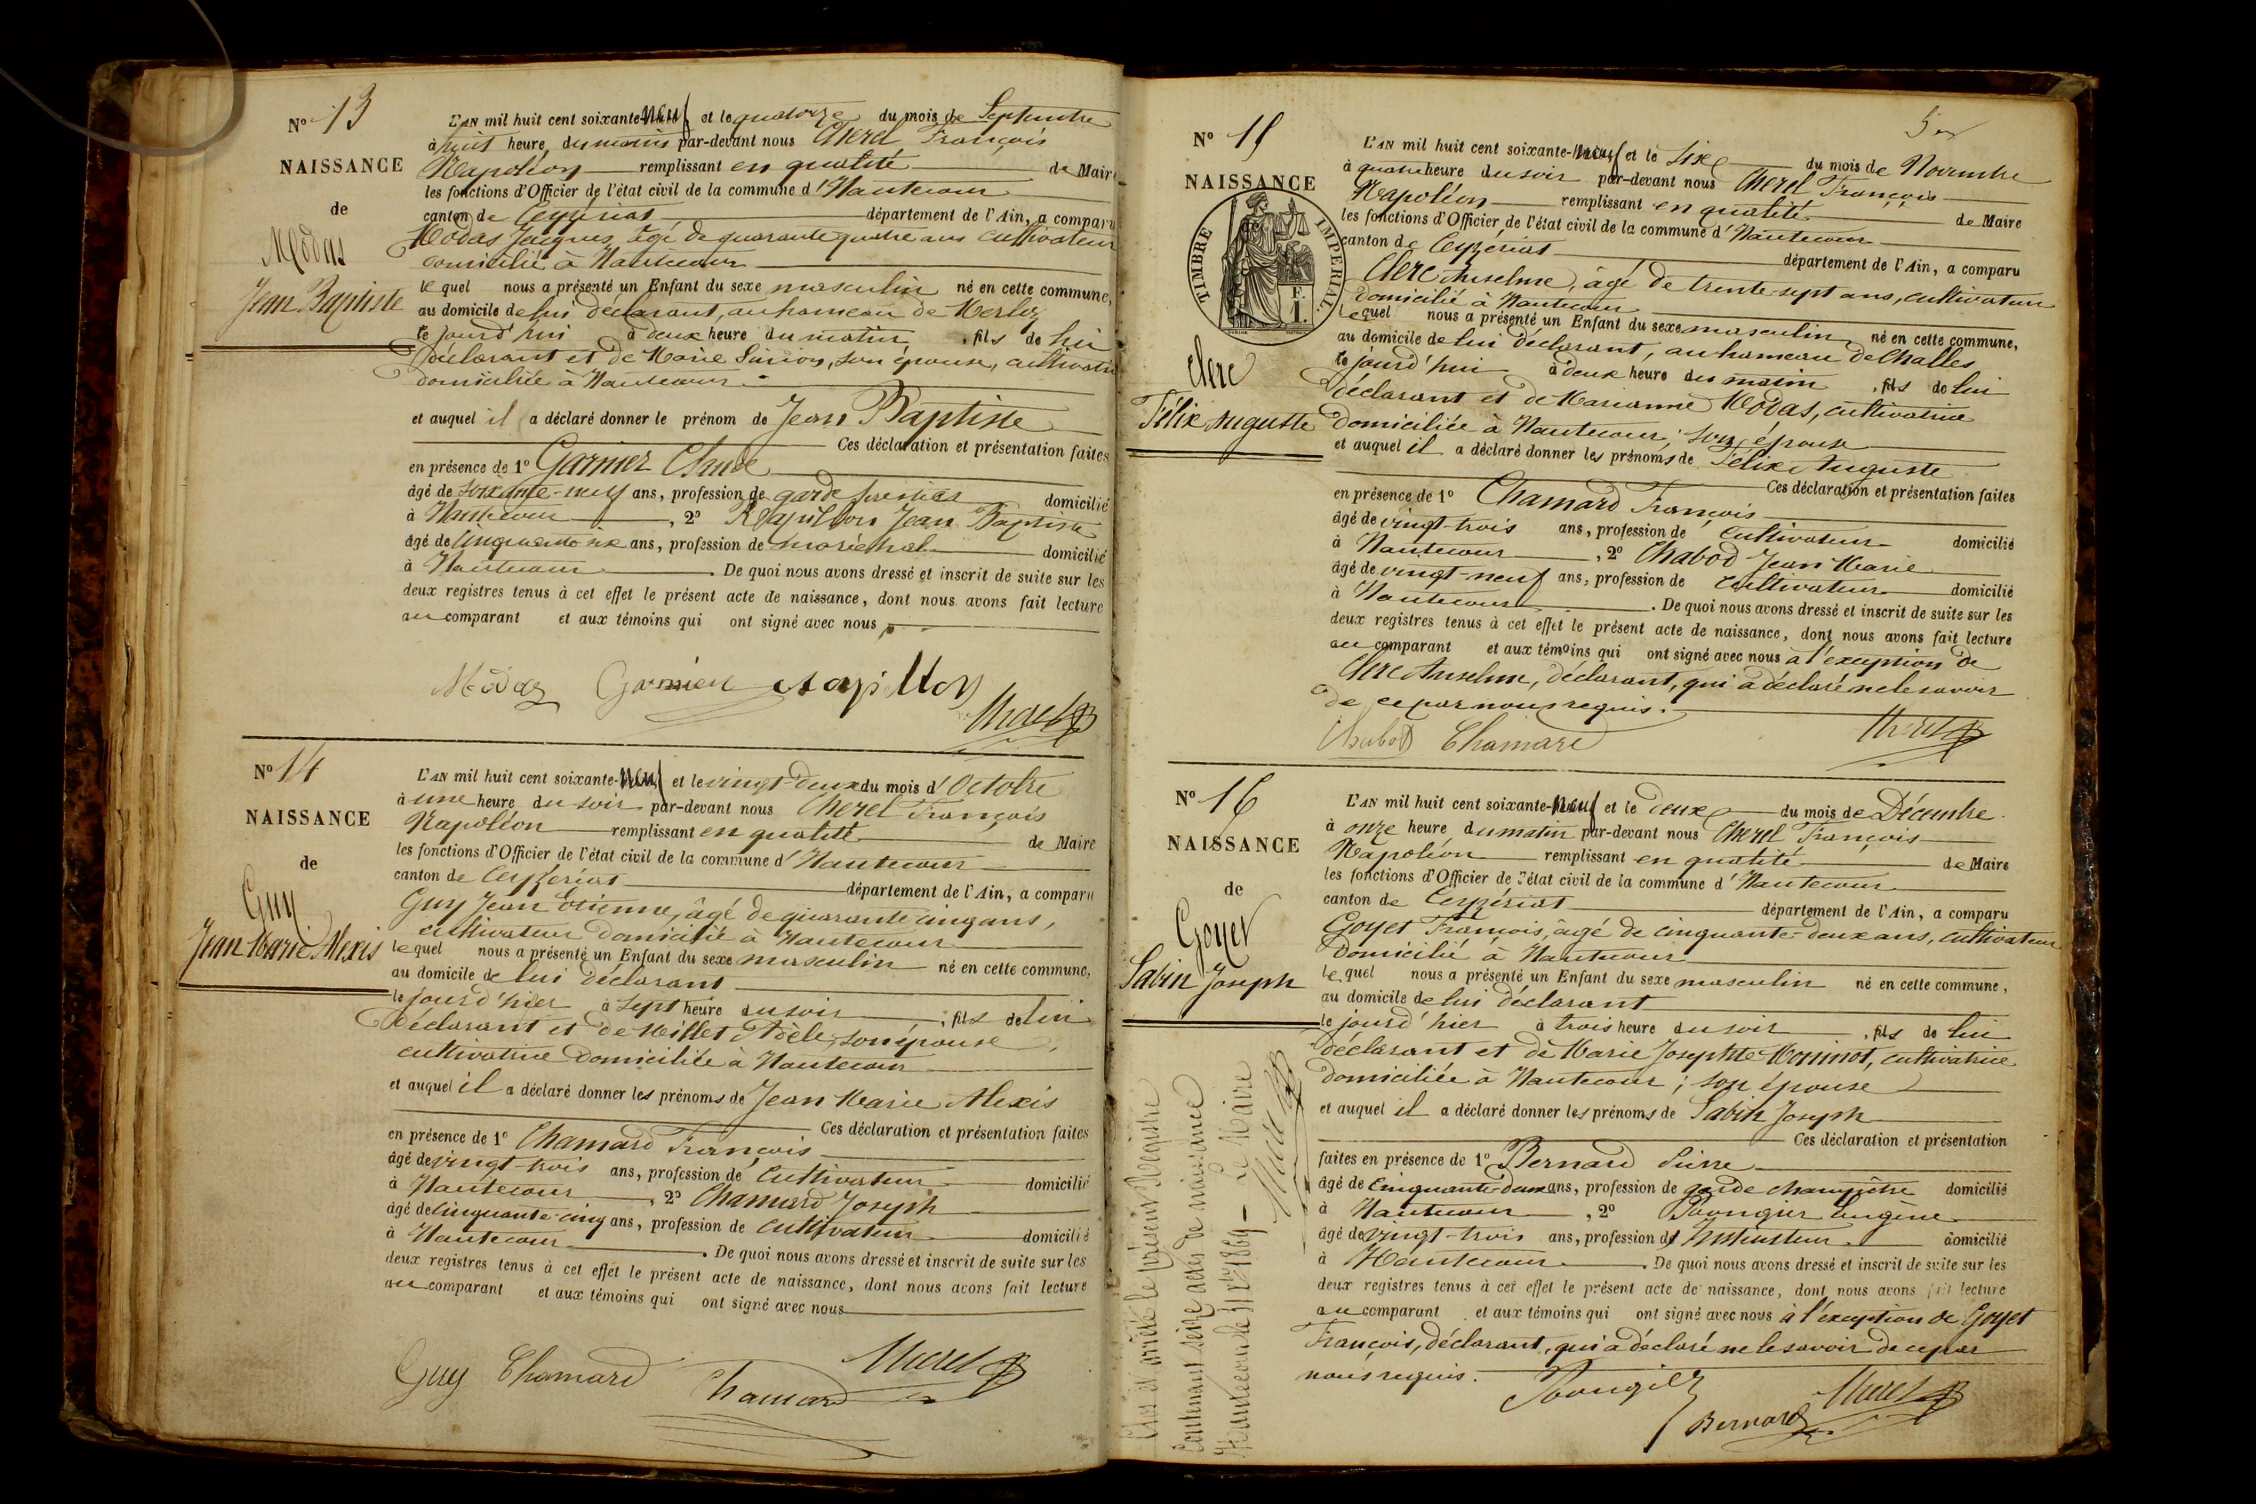 N° 13
NAISSANCE
de
Modas
Jean Baptiste
L'AN mil huit cent soixante-neuf et le quatorze du mois de Septembre
à huit heure du matin par-devant nous Cherel François
Napoléon remplissant en qualité de Maire
les fonctions d'Officier de l'état civil de la commune d'Hautecour
canton de Ceyzériat département de l'Ain, a comparu
Modas Jacques, âgé de quarante quatre ans cultivateur
domicilié à Hautecour
lequel nous a présenté un Enfant du sexe masculin né en cette commune,
au domicile de lui déclarant, au hameau de
le jourd'hui à deux heure du matin, fils de lui
déclarant et de Marie son épouse, cultivatrice
domiciliée à Hautecour
et auquel il a déclaré donner le prénom de Jean Baptiste
Ces déclaration et présentation faites
en présence de 1° Garnier Claude
âgé de soixante-neuf ans, profession de garde forestier domicilié
à Hautecour, 2° Rapillon Jean Baptiste
âgé de cinquante six ans, profession de maréchal domicilié
à Hautecour. De quoi nous avons dressé et inscrit de suite sur les
deux registres tenus à cet effet le présent acte de naissance, dont nous avons fait lecture
au comparant et aux témoins qui ont signé avec nous
Modas Garnier Rapillon
Cherel
N° 14
NAISSANCE
de
Guy
Jean Marie Alexis
L'AN mil huit cent soixante-neuf et le vingt-deux du mois d'Octobre
à une heure du soir par-devant nous Cherel François
Napoléon remplissant en qualité de Maire
les fonctions d'Officier de l'état civil de la commune d'Hautecour
canton de Ceyzériat département de l'Ain, a comparu
Guy Jean Etienne, âgé de quarante cinq ans,
cultivateur domicilié à Hautecour
lequel nous a présenté un Enfant du sexe masculin né en cette commune,
au domicile de lui déclarant
le jourd'hier à sept heure du soir, fils de lui
déclarant et de Millet Adèle, son épouse,
cultivatrice domiciliée à Hautecour
et auquel il a déclaré donner les prénoms de Jean Marie Alexis
Ces déclaration et présentation faites
en présence de 1° Chamard François
âgé de vingt-trois ans, profession de cultivateur domicilié
à Hautecour, 2° Chamard Joseph
âgé de cinquante-cinq ans, profession de cultivateur domicilié
à Hautecour. De quoi nous avons dressé et inscrit de suite sur les
deux registres tenus à cet effet le présent acte de naissance, dont nous avons fait lecture
au comparant et aux témoins qui ont signé avec nous
Guy Chamard Chamard Cherel
N° 15
NAISSANCE
TIMBRE IMPÉRIAL
de
Clerc
Félix Auguste
L'AN mil huit cent soixante-neuf et le six du mois de Novembre
à quatre heure du soir par-devant nous Cherel François
Napoléon remplissant en qualité de Maire
les fonctions d'Officier de l'état civil de la commune d'Hautecour
canton de Ceyzériat département de l'Ain, a comparu
Clerc Anselme, âgé de trente-sept ans, cultivateur
domicilié à Hautecour
lequel nous a présenté un Enfant du sexe masculin né en cette commune,
au domicile de lui déclarant, au hameau de Challes
le jourd'hui à deux heure du matin, fils de lui
déclarant et de Marianne Modas, cultivatrice
domiciliée à Hautecour, son épouse
et auquel il a déclaré donner les prénoms de Félix Auguste
Ces déclaration et présentation faites
en présence de 1° Chamard François
âgé de vingt-trois ans, profession de cultivateur domicilié
à Hautecour, 2° Chabod Jean Marie
âgé de vingt-neuf ans, profession de cultivateur domicilié
à Hautecour. De quoi nous avons dressé et inscrit de suite sur les
deux registres tenus à cet effet le présent acte de naissance, dont nous avons fait lecture
au comparant et aux témoins qui ont signé avec nous à l'exception de
Clerc Anselme, déclarant, qui a déclaré ne le savoir
de ce par nous requis.
Chabod Chamard Cherel
N° 16
NAISSANCE
de
Goyet
Sabin Joseph
L'AN mil huit cent soixante-neuf et le deux du mois de Décembre
à onze heure du matin par-devant nous Cherel François
Napoléon remplissant en qualité de Maire
les fonctions d'Officier de l'état civil de la commune d'Hautecour
canton de Ceyzériat département de l'Ain, a comparu
Goyet François, âgé de cinquante-deux ans, cultivateur
domicilié à Hautecour
lequel nous a présenté un Enfant du sexe masculin né en cette commune,
au domicile de lui déclarant
le jourd'hier à trois heure du soir, fils de lui
déclarant et de Marie Josephte Moninot, cultivatrice
domiciliée à Hautecour; son épouse
et auquel il a déclaré donner les prénoms de Sabin Joseph
Ces déclaration et présentation
faites en présence de 1° Bernard Pierre
âgé de cinquante-deux ans, profession de garde champêtre domicilié
à Hautecour, 2° Eugène
âgé de vingt-trois ans, profession d'instituteur domicilié
à Hautecour. De quoi nous avons dressé et inscrit de suite sur les
deux registres tenus à cet effet le présent acte de naissance, dont nous avons fait lecture
au comparant et aux témoins qui ont signé avec nous à l'exception de Goyet
François, déclarant, qui a déclaré ne le savoir de ce par
nous requis.
Bernard Cherel
Clos et arrêté le présent Registre
contenant seize actes de naissance
Hautecour le 31 Xbre 1869 – Le Maire
Cherel